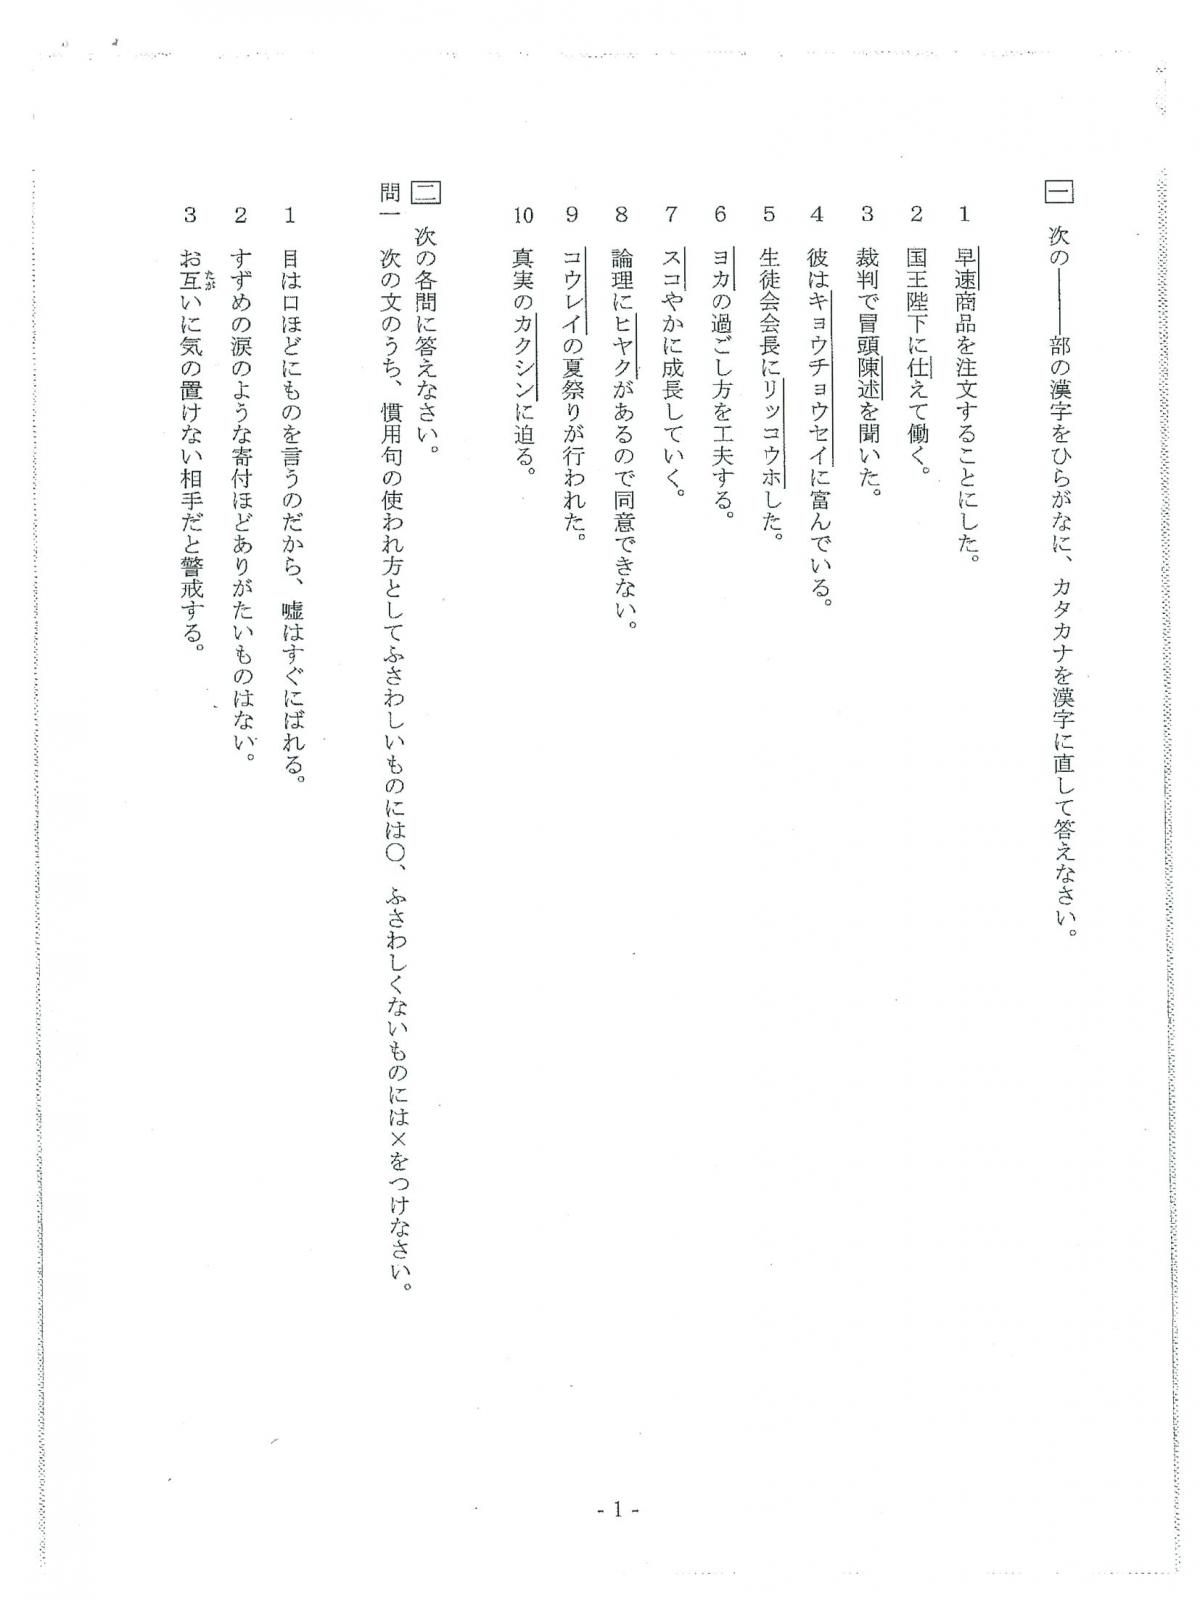 一 次の――部の漢字をひらがなに、カタカナを漢字に直して答えなさい。
1 早速商品を注文することにした。
2 国王陛下に仕えて働く。
3 裁判で冒頭陳述を聞いた。
4 彼はキョウチョウセイに富んでいる。
5 生徒会会長にリッコウホした。
6 ヨカの過ごし方を工夫する。
7 スコやかに成長していく。
8 論理にヒヤクがあるので同意できない。
9 コウレイの夏祭りが行われた。
10 真実のカクシンに迫る。
二 次の各問に答えなさい。
問一 次の文のうち、慣用句の使われ方としてふさわしいものには〇、ふさわしくないものには×をつけなさい。
1 目は口ほどにものを言うのだから、嘘はすぐにばれる。
2 すずめの涙のような寄付ほどありがたいものはない。
3 お互いに気の置けない相手だと警戒する。
たが
- 1 -